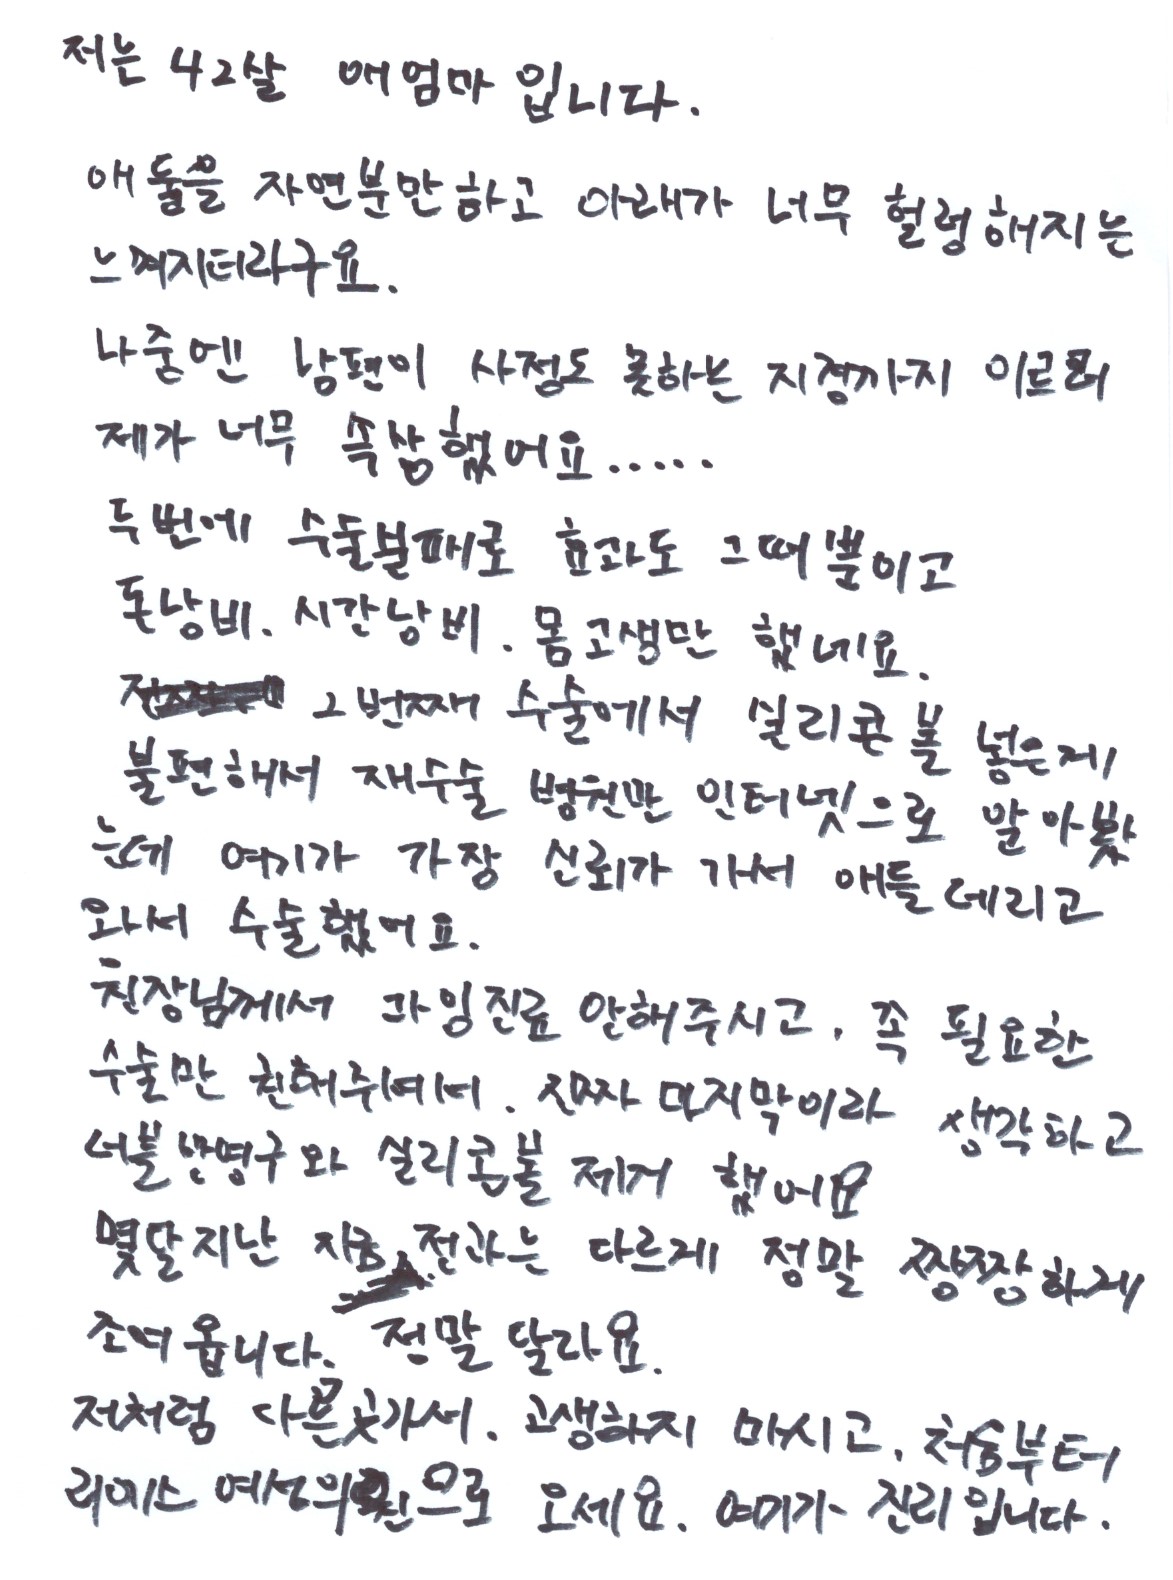 저는 42살 애엄마 입니다.
애 둘을 자연분만하고 아래가 너무 헐렁해지는
느껴지더라구요.
나중엔 남편이 사정도 못하는 지경까지 이르러
제가 너무 속상했어요.....
두번에 수술실패로 효과도 그때뿐이고
돈낭비. 시간낭비. 몸고생만 했네요.
2번째 수술에서 실리콘볼 넣은게
불편해서 재수술 병원만 인터넷으로 알아봤
는데 여기가 가장 신뢰가 가서 애들 데리고
와서 수술했어요.
원장님께서 과잉진료 안해주시고, 꼭 필요한
수술만 권해주셔서. 진짜 마지막이라 생각하고
더블반영구와 실리콘볼 제거 했어요
몇달지난 지금 전과는 다르게 정말 짱짱하게
조여옵니다. 정말 달라요.
저처럼 다른곳가서. 고생하지 마시고, 처음부터
여성의원으로 오세요. 여기가 진리입니다.